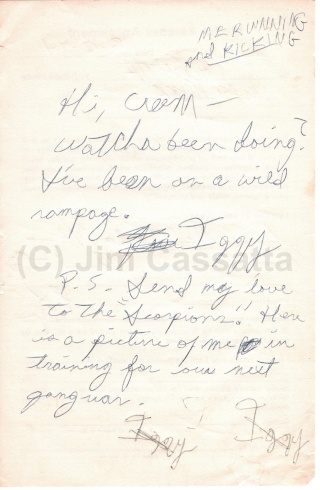 ME RUNNING
and KICKING
Hi, Creem —
Watcha been doing?
I've been on a wild
rampage.
Iggy
(C) Jim Cassatta
P.S. Send my love
to the "Scorpions". Here
is a picture of me in
training for our next
gangwar.
Iggy Iggy